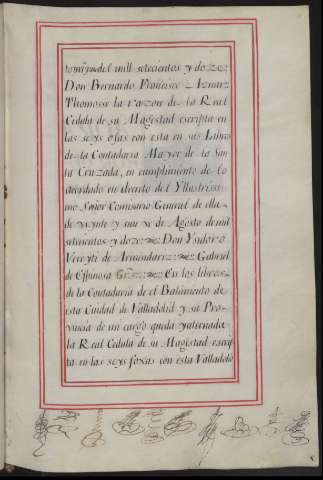 del mill setecientos y doze
Don Bernardo Francisco Aznar
Thomosse la razon de la Real
Cedula de su Magestad escripta en
las seys ojas con esta en sus Libros
de la Contaduria Mayor de la San
ta Cruzada, en cumplimiento de lo
acordado en decreto del Yllustrissi
mo Señor Comisario General de ella
de veynte y nueve de Agosto de mil
setecientos y doze Don Ysidoro
de Armendariz Gabriel
de Espinosa En los libros
de la Contaduria de el Balimiento de
esta Ciudad de Valladolid y su Pro-
vincia de mi cargo queda
la Real Cedula de su Magestad escrip
ta en las seys foxas con esta Valladolid